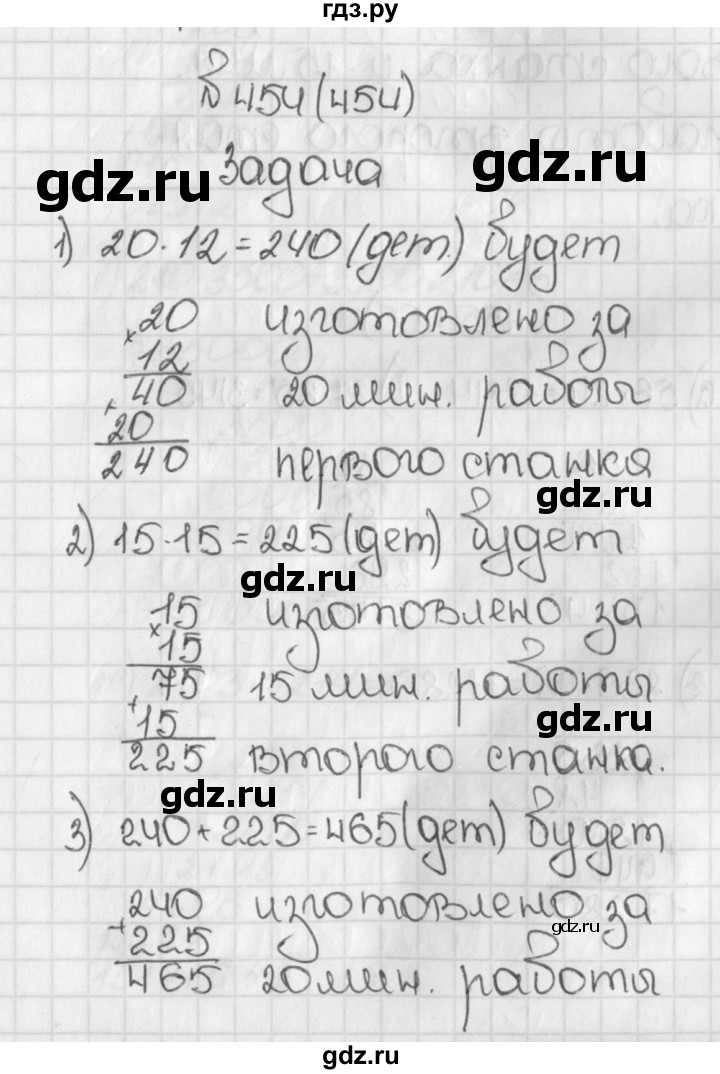 гдз.ру
№ 454 (454)
Задача
gdz.ru
gdz.ru
1) 20·12=240(дет.) будет
×20 изготовлено за
12
+40 20 мин. работы
20
240 первого станка
gdz.ru
2) 15·15=225(дет) будет
gdz.ru
×15 изготовлено за
15
+75 15 мин. работы
15
gdz.ru
225 второго станка.
gdz.ru
3) 240+225=465(дет) будет
+240 изготовлено за
gdz.ru
225
465 20 мин. работы
gdz.ru